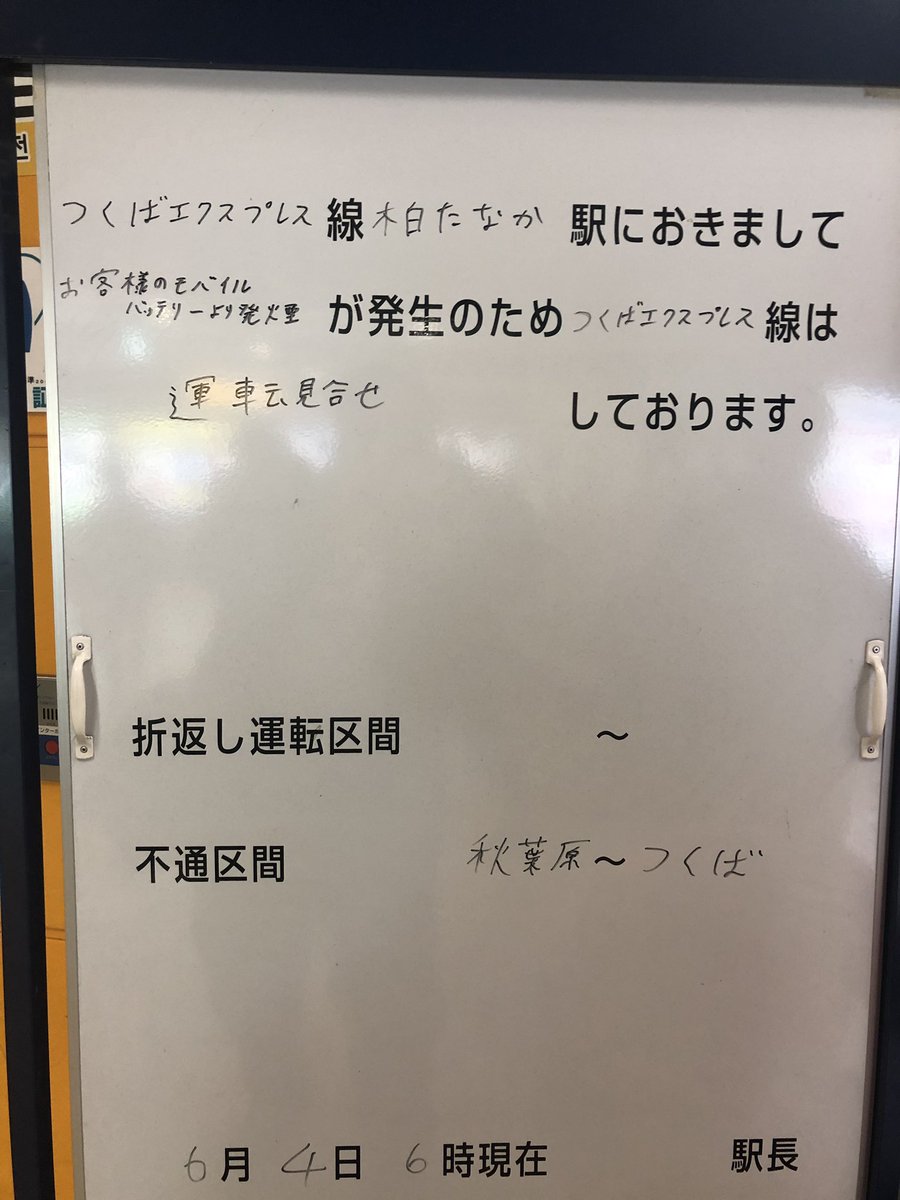 つくばエクスプレス線柏たなか駅におきまして
お客様のモバイル
バッテリーより発火亜が発生のためつくばエクスプレス線は
運転見合せしております。
折返し運転区間 ～
不通区間 秋葉原～つくば
6月4日6時現在 駅長